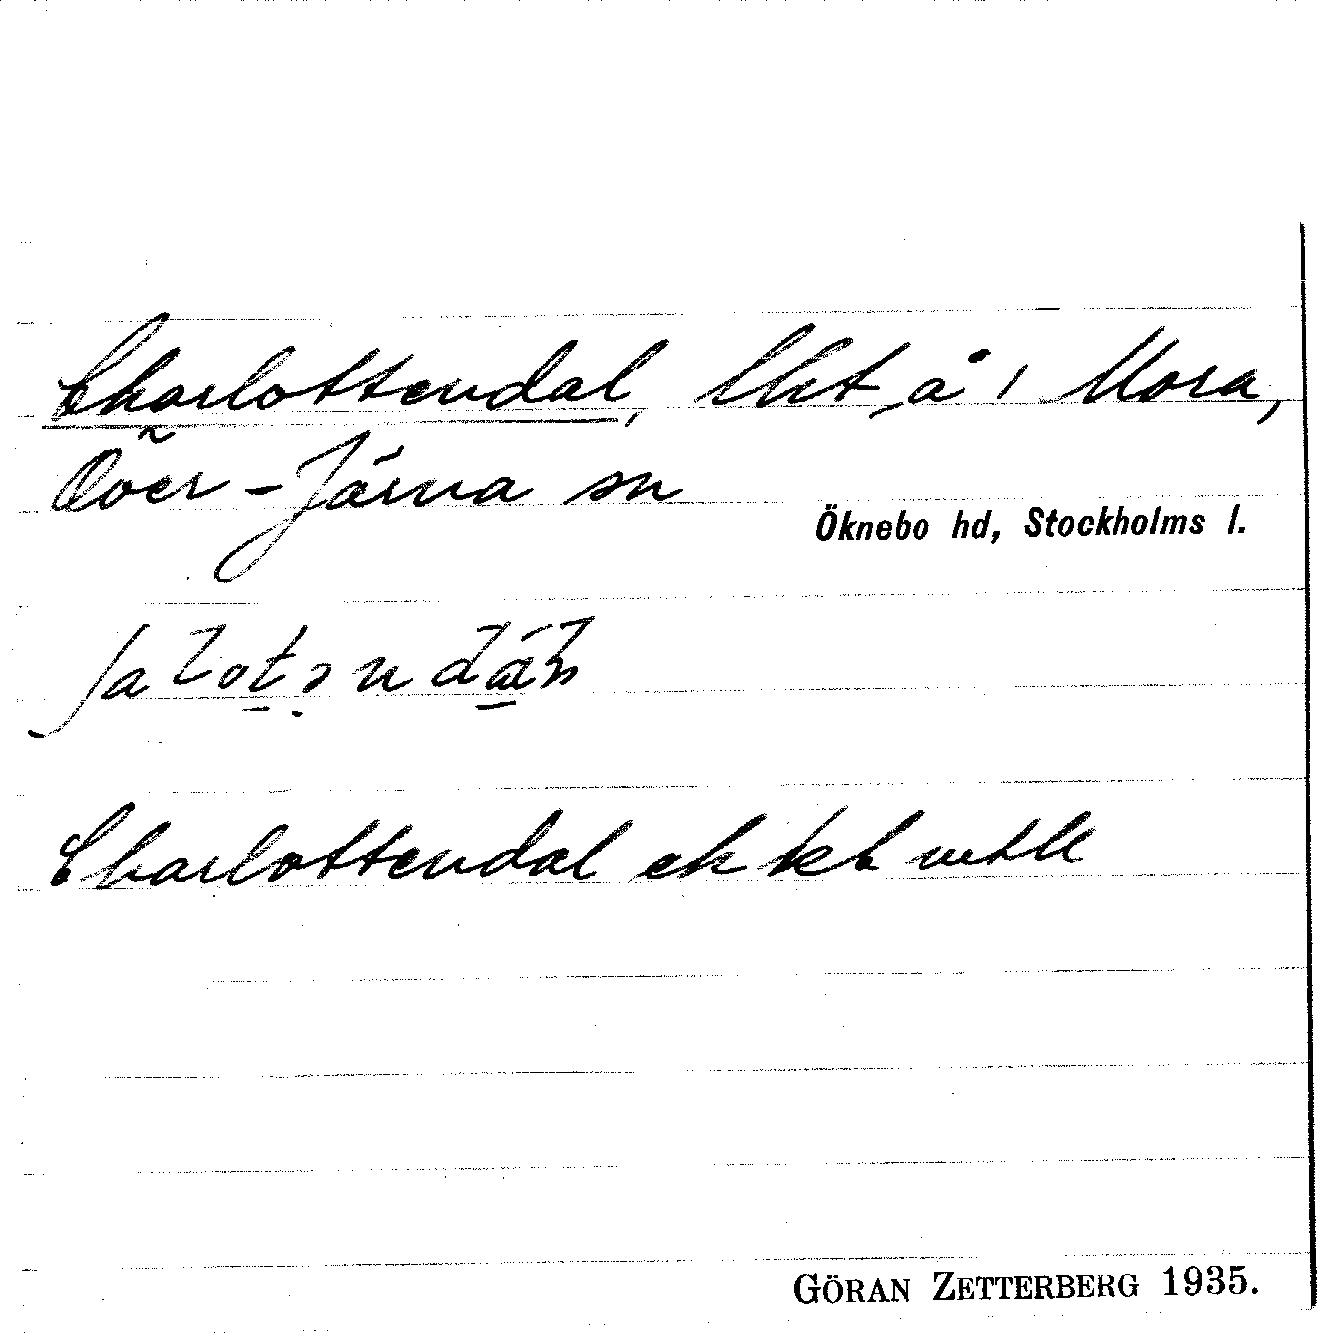 Charlottendal, lht å 1 Mora,
Över-Järna sn
Öknebo hd, Stockholms l.
Charlottendal ek kbl
GÖRAN ZETTERBERG 1935.